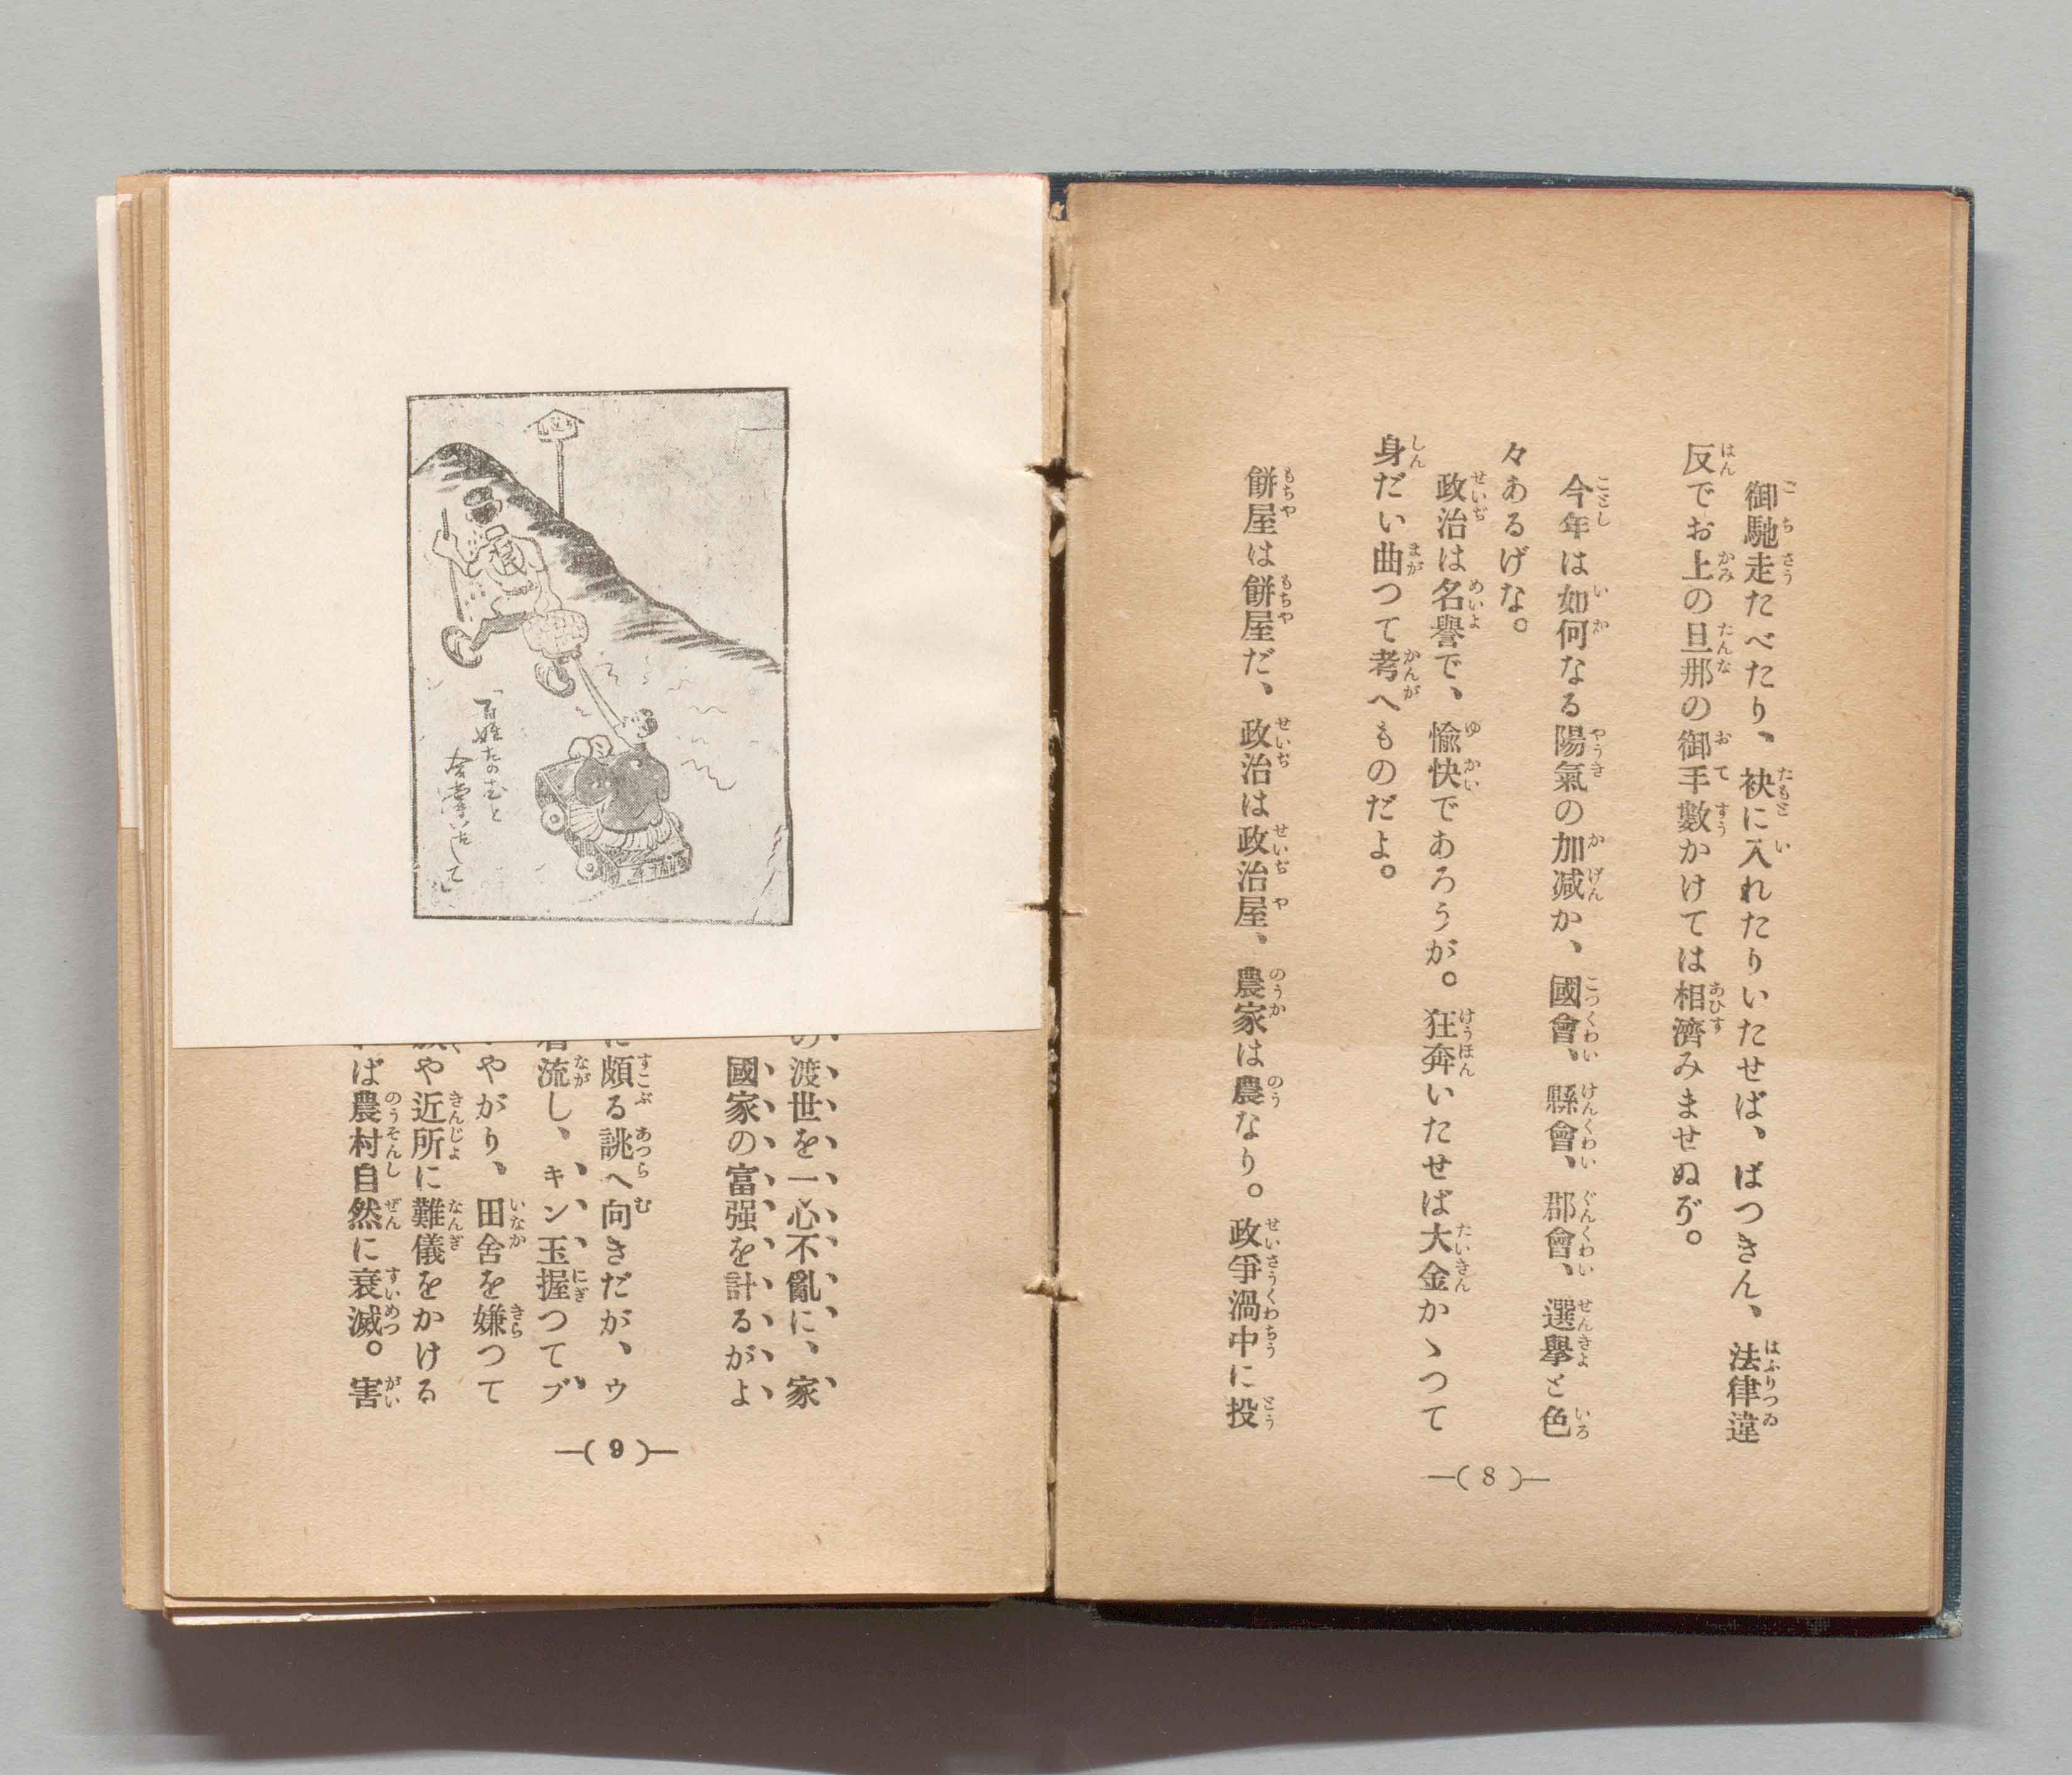 御馳走たべたり、袂に入れたりいたせば、ばつきん、法律違
反でお上の旦那の御手數かけては相濟みませぬぞ。
今年は如何なる陽氣の加減か、國會、縣會、郡會、選擧と色
々あるげな。
政治は名譽で、愉快であろうが。狂奔いたせば大金かゝつて
身だい曲つて考へものだよ。
餅屋は餅屋だ、政治は政治屋、農家は農なり。政爭渦中に投
—( 8 )—
の渡世を一心不亂に、家
國家の富强を計るがよ
に頗る誂へ向きだが、ゥ
着流し、キン玉握つてブ
やがり、田舍を嫌つて
や近所に難儀をかける
ば農村自然に衰滅。害
—( 9 )—